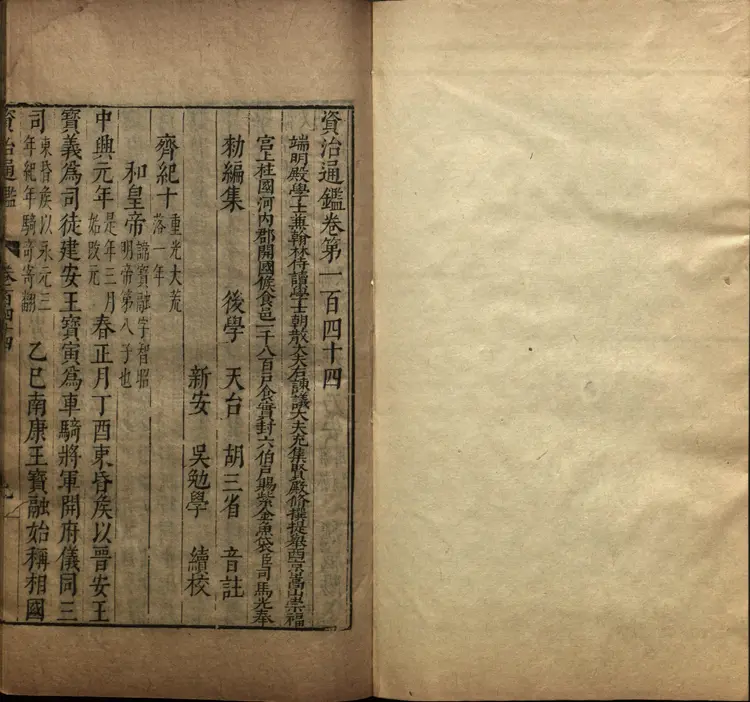 資治通鑑卷第一百四十四
端明殿學士兼翰林侍讀學士朝散大夫右諫議大夫充集賢殿修撰提舉西京嵩山崇福
宮上柱國河內郡開國侯食邑一千八百戶食實封六伯戶賜紫金魚袋臣司馬光奉
勑編集 後學 天台 胡三省 音註
新安 吳勉學 續校
齊紀十 重光大荒
落一年
和皇帝 諱寶融字智昭
明帝第八子也
中興元年 是年三月
始改元 春正月丁酉東昏侯以晉安王
寶義爲司徒建安王寶寅爲車騎將軍開府儀同三
司 東昏侯以永元三
年紀年騎奇寄翻 乙巳南康王寶融始稱相國
資治通鑑 卷百四十四